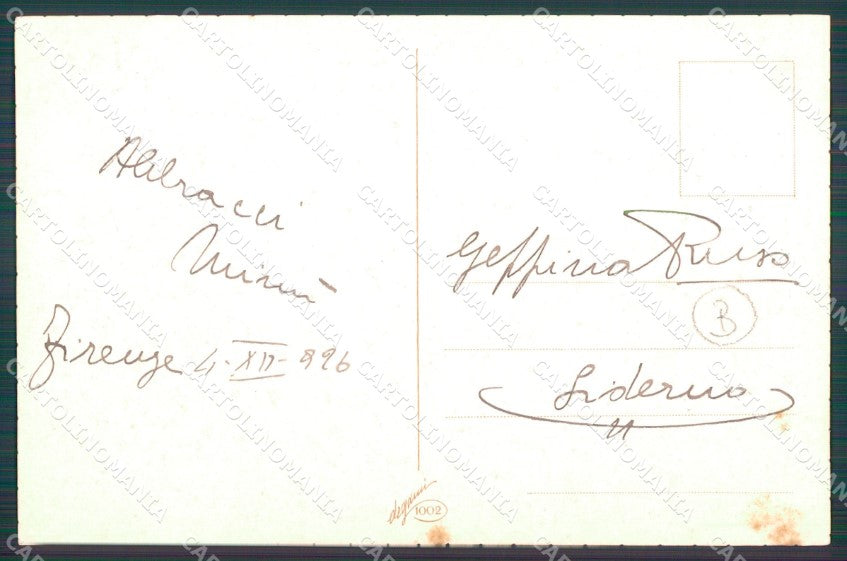 Abbracci
Mimì
Firenze 4-XII-926
Geppina Russo
B
Siderno
degami
1002
CARTOLINOMANIA